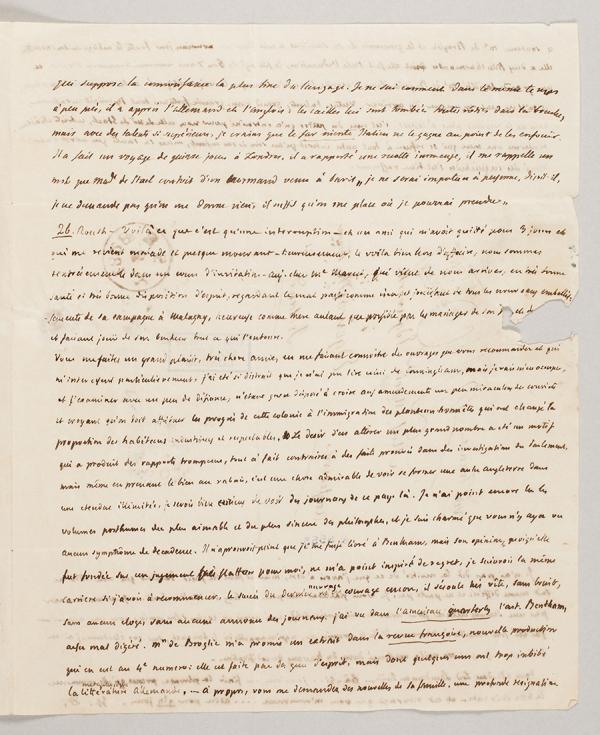 qui suppose la connoissance la plus fine du langage. Je ne sai comment dans le même temps
à peu près, il a appris l'allemand et l'anglois; les cailles lui sont tombées toutes roties dans la bouche,
mais avec des talents si supérieurs, je crains que le far niente Italien ne le gagne au point de les enfouir
il a fait un voyage de quinze jours à Londres, il a rapporté une recette immense, il me rappelle un
mot que Mad. de Stael contoit d'un normand venu à Paris, „ je ne serai importun à personne, disoit-il,
je ne demande pas qu'on me donne rien, il suffit qu'on me place où je pourrai prendre „
26. Voilà ce que c'est qu'une interruption – et un ami qui m'avoit quitté pour 3 jours et
qui me revient malade et presque mourant – heureusement, le voilà bien hors d'affaire, nous sommes
dans un cours d'invitation – aujourd'hui Me Marcet, qui vient de nous arriver, en très bonne
santé et très bonne disposition d'esprit, regardant le mal passé comme et jouissant de tous les
de sa campagne à Malagny, heureuse comme mère autant que possible par les mariages de son
et faisant jouir de son bonheur tout ce qui l'entoure.
Vous me faites un grand plaisir, très chère amie, en me faisant connoitre des ouvrages que vous recommandez et qui
m'intéressent particulièrement: j'ai été si distrait que je n'ai pu lire celui de Cunningham, mais je vais m'en occuper,
et l'examiner avec un peu de défiance, n'étant guère disposé à croire aux amendements un peu miraculeux des convicts
et voyant qu'on doit attribuer les progrès de cette colonie à l'immigration des planteurs honnêtes qui ont changé la
proportion des habitans industrieux et respectables. Le desir d'en attirer un plus grand nombre a été un motif
qui a produit des rapports trompeurs, tout à fait contraires à des faits prouvés dans des investigations du Parlement.
mais même en prenant le bien au rabais, c'est une chose admirable de voir se former une autre angleterre dans
une étendue illimitée, je serois bien curieux de voir des journaux de ce pays là. Je n'ai point encore lu les
volumes posthumes du plus aimable et du plus sincère des philosophes, et je suis charmé que vous n'y ayez vu
aucun symptôme de décadence. Il n'approuvoit point que je me fusse livré à Bentham, mais son opinion, quoiqu'elle
fut fondée sur un jugement très flatteur pour moi, ne m'a point inspiré de regret, je suivrois la même
carrière si j'avois à recommencer. le succès du dernier ouvrage encore, il s'écoule très vite, sans bruit,
sans aucun éloge, sans aucune annonce des journaux. j'ai vu dans l'american quarterly l'art. Bentham,
assez mal digéré. Mr de Broglie m'a promis un extrait dans la revue françoise, nouvelle production
qui en est au 4e numero: elle est faite par des gens d'esprit, mais dont quelques uns ont trop imbibé
la littérature métaphysique Allemande, – A propos, vous me demandez des nouvelles de sa famille, une profonde résignation